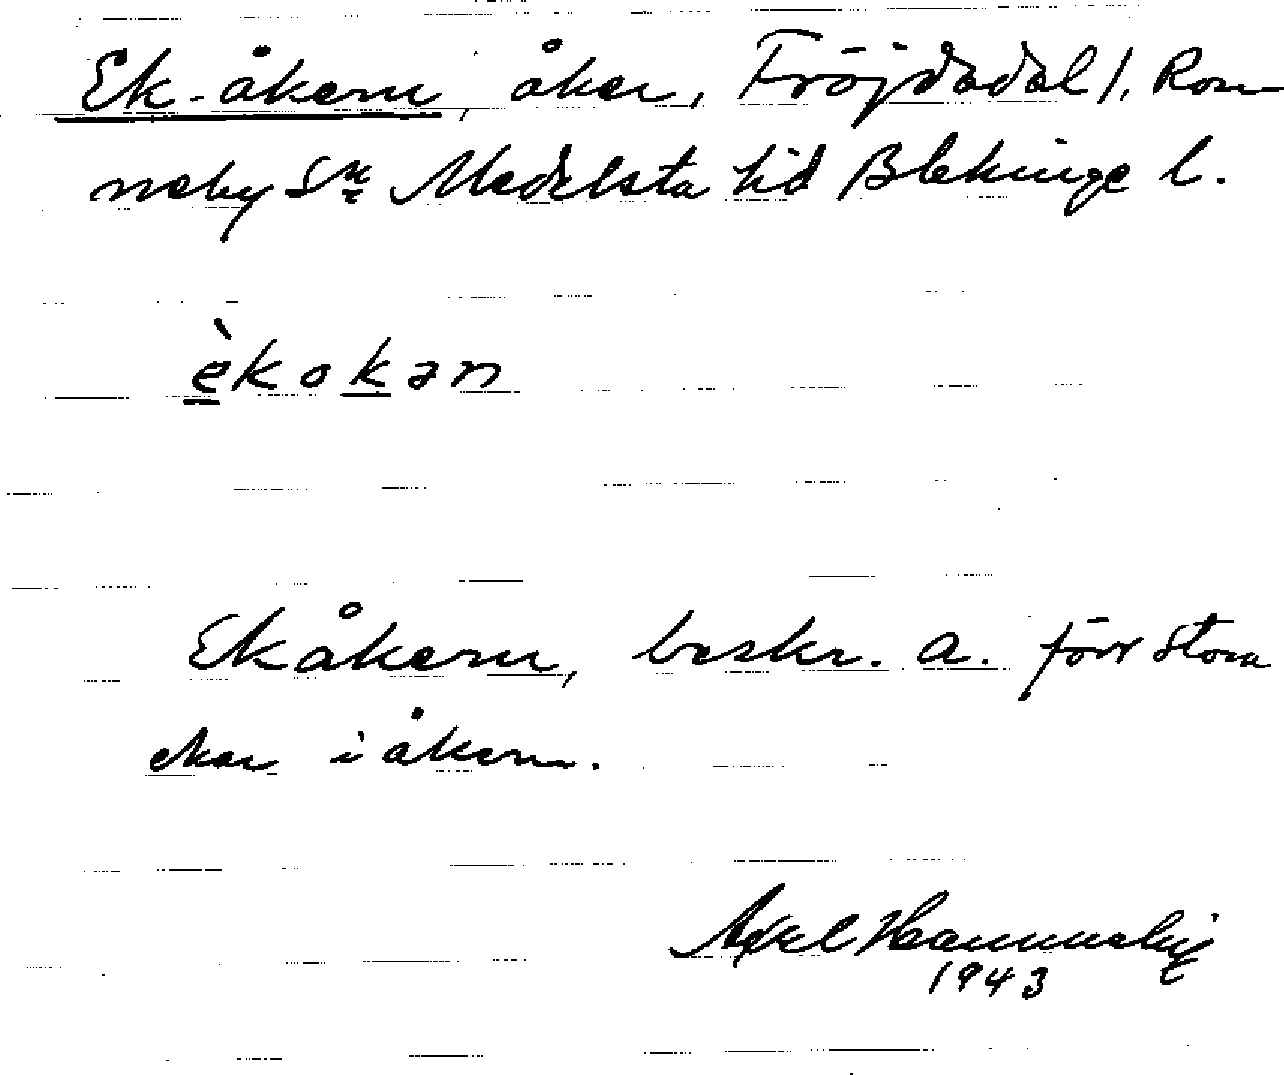 Ek-åkern, åker, Fröjdadal 1, Ron-
neby sn Medelsta hd Blekinge l.
èkokən
Ekåkern, beskr. a. förr stora
ekar i åkern.
Axel
1943